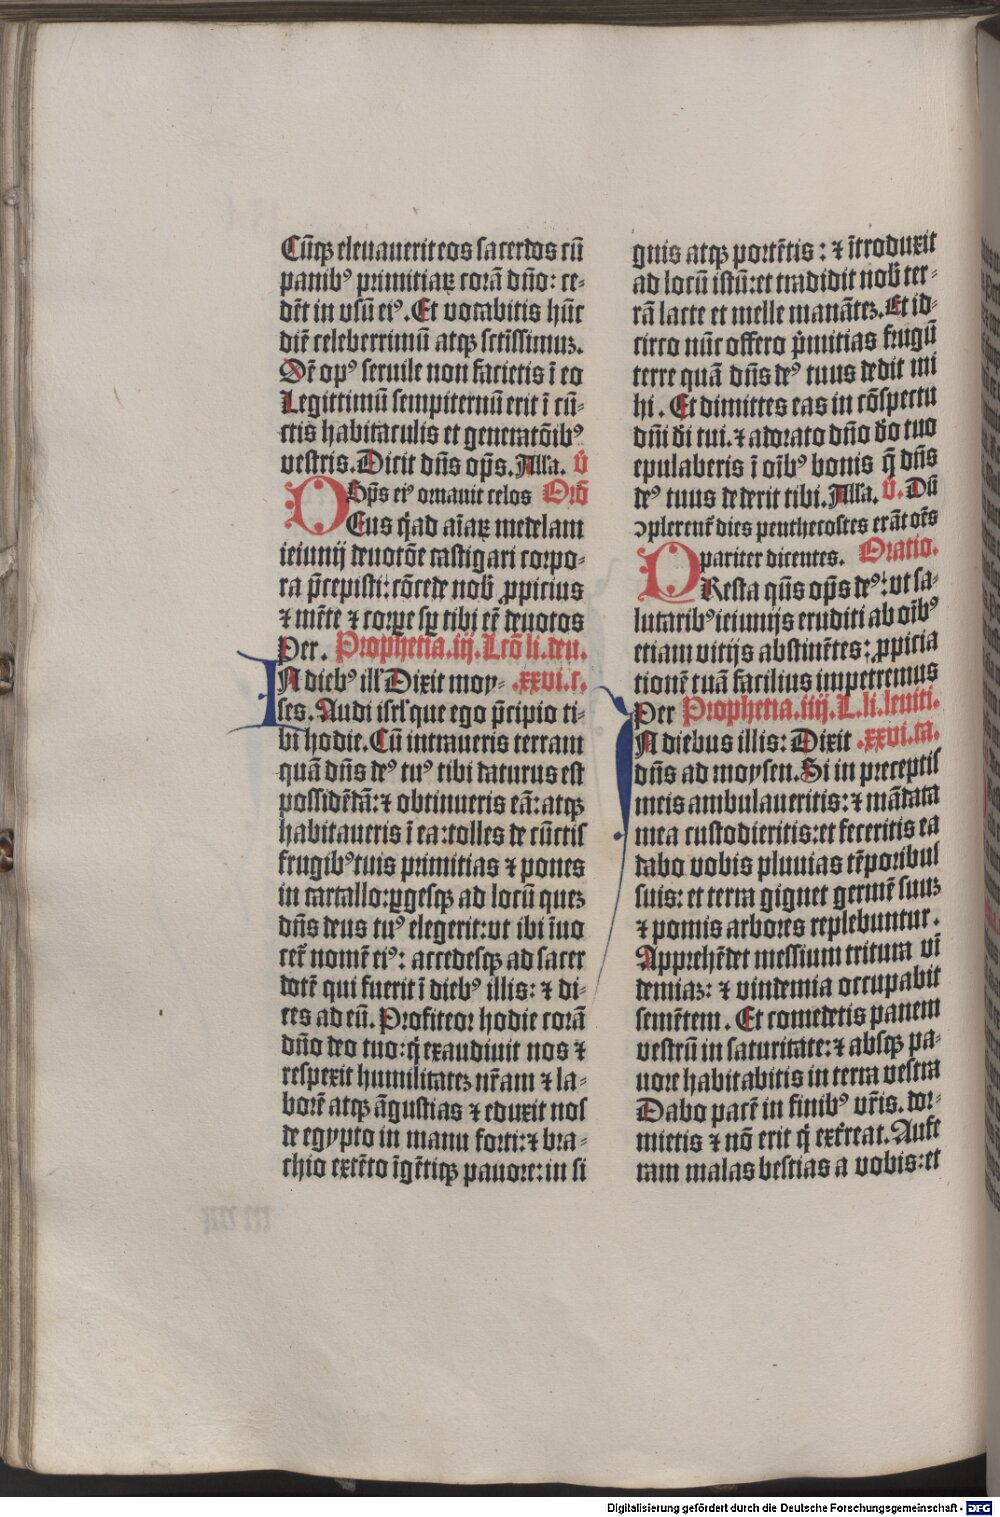 Cūqꝫ eleuauerit eos sacerdos cū
panibꝰ primitiaꝝ corā dño: ce-
dēt in vsū eiꝰ. Et vocabitis hūc
diē celeberrimū atqꝫ sctissimuꝫ.
Oē opꝰ seruile non facietis ī eo
Legittimū sempiternū erit ī cū-
ctis habitaculis et generatōibꝰ
vestris. Dicit dñs op̄s. Alla. v̄
O Sp̄s eiꝰ ornauit celos Orō
Eus q̄ ad aīaꝝ medelam
ieiunij deuotōe castigari corpo-
ra p̄cepisti: cōcede nob̄ ꝓpicius
⁊ mēte ⁊ corꝑe sꝑ tibi eē deuotos
Per. Prophetia .iij. Lcō li. deu.
IN diebꝰ ill' Dixit moy- .xxvi. c.
ses. Audi isrl' que ego p̄cipio ti-
bi hodie. Cū intraueris terram
quā dñs deꝰ tuꝰ tibi daturus est
possidēdā: ⁊ obtinueris eā: atqꝫ
habitaueris ī ea: tolles de cūctis
frugibꝰ tuis primitias ⁊ pones
in cartallo: ꝑgesqꝫ ad locū queꝫ
dñs deus tuꝰ elegerit: vt ibi īuo
cet̄ nomē eiꝰ: accedesqꝫ ad sacer
dotē qui fuerit ī diebꝰ illis: ⁊ di-
ces ad eū. Profiteor hodie corā
dño deo tuo: q̄ exaudiuit nos ⁊
respexit humilitateꝫ nr̄am ⁊ la-
borē atqꝫ āgustias ⁊ eduxit nos
de egypto in manu forti: ⁊ bra-
chio extēto īgētiqꝫ pauore: in si
gnis atqꝫ portētis: ⁊ ītroduxit
ad locū istū: et tradidit nob̄ ter-
rā lacte et melle manāteꝫ. Et id-
circo nūc offero p̄mitias frugū
terre quā dñs deꝰ tuus dedit mi
hi. Et dimittes eas in cōspectu
dñi d̄i tui. ⁊ adorato dño d̄o tuo
epulaberis ī oībꝰ bonis q̄ dñs
deꝰ tuus dederit tibi. Alla. v̄. Dū
ꝯplerent̄ dies penthecostes erāt oēs
pariter dicentes. Oratio.
PResta q̄s op̄s deꝰ: vt sa-
lutaribꝰ ieiunijs eruditi ab oībꝰ
etiam vitijs abstinētes: ꝓpicia
tionē tuā facilius impetremus
Per Prophetia .iiij. L. li. leuiti.
IN diebus illis: Dixit .xxvi. ca.
dñs ad moysen. Si in preceptis
meis ambulaueritis: ⁊ mādata
mea custodieritis: et feceritis ea
dabo vobis pluuias tēporibus
suis: et terra gignet germē suuꝫ
⁊ pomis arbores replebuntur.
Apprehēdet messium tritura vī
demiaꝫ: ⁊ vindemia occupabit
sementem. Et comedetis panem
vestrū in saturitate: ⁊ absqꝫ pa-
uore habitabitis in terra vestra
Dabo pacē in finibꝰ vr̄is. dor-
mietis ⁊ nō erit q̄ ext̄reat. Aufe
ram malas bestias a vobis: et
Digitalisierung gefördert durch die Deutsche Forschungsgemeinschaft - DFG